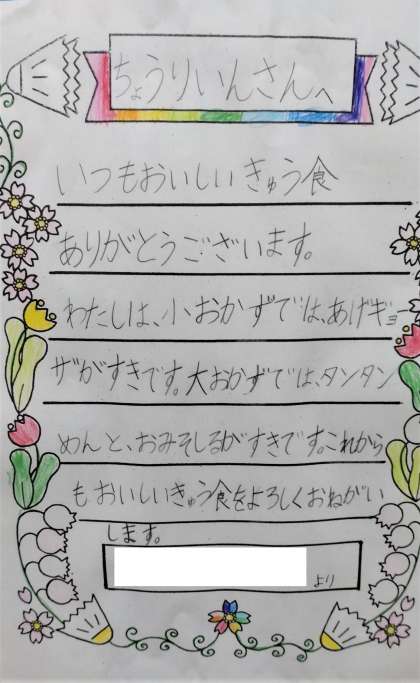 ちょうりいんさんへ
いつもおいしいきゅう食
ありがとうございます。
わたしは、小おかずでは、あげギョ
ザがすきです。大おかずでは、タンタン
めんと、おみそしるがすきです。これから
もおいしいきゅう食をよろしくおねがい
します。
より